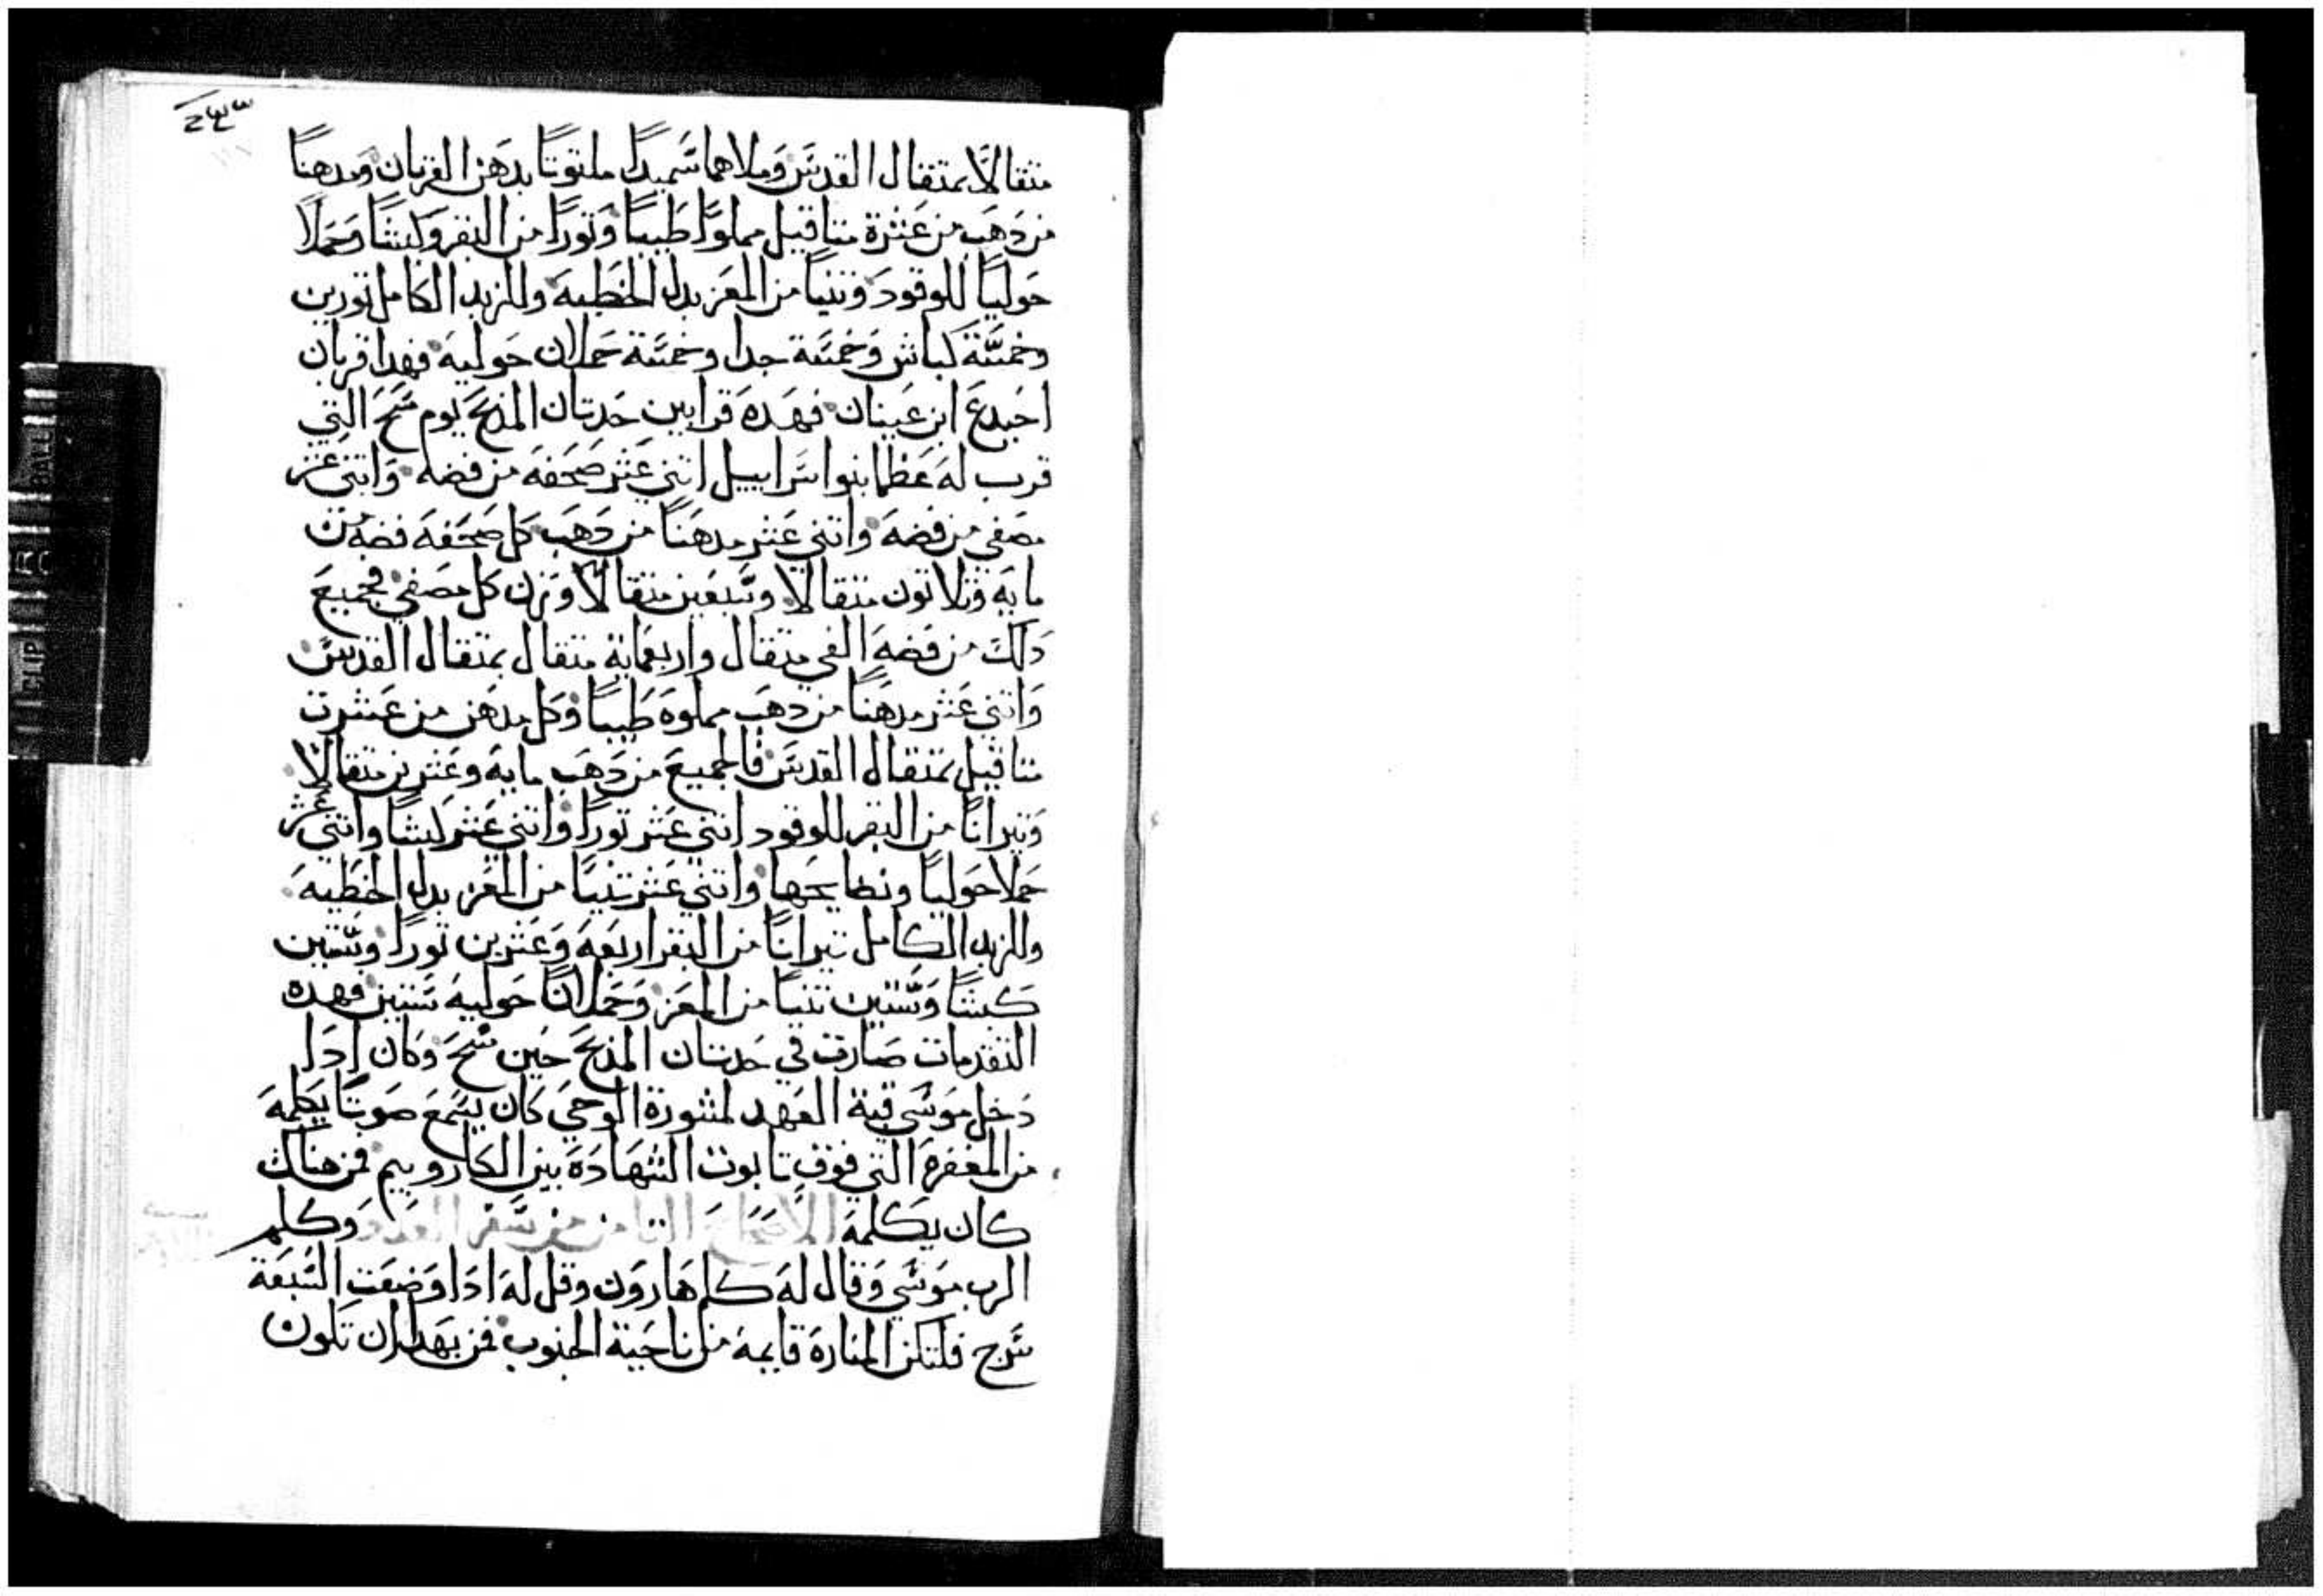 متقالاً بمتقال القدس وملاهما سميداً ملتوتاً بدهن القربان ومدهناً
من دهب من عشرة متاقيل مملواً طيباً وتوراً من البقر وكبشاً وحملاً
حولياً للوقود وتنياً من المعز بدل الخطيه وللزبد الكامل تورين
وخمسة كباش وخمسة جدا وخمسة حملان حوليه فهدا قربان
احيدع ابن عينان فهده قرابين حدتان المذبح يوم مسح التي
قرب له عظما بنوا سراييل اتني عشر صحفه من فضه واتني عشر
مصفي من فضه واتني عشر مدهناً من دهب كل صحفه فضه من
مايه وتلاتون متقالاً وسبعين متقالاً وزن كل مصفي فجميع
دلك من فضه الفي متقال واربعماية متقال بمتقال القدس
واتني عشر مدهناً من دهب مملوه طيباً وكل مدهن من عشرت
متاقيل بمتقال القدس فالجميع من دهب مايه وعشرين متقالاً
وتيراناً من البقر للوقود اتني عشر توراً واتني عشر كبشاً واتني عشر
حملا حولياً ونطايحها واتني عشر تنياً من المعز بدل الخطيه
وللزبد الكامل تيراناً من البقر اربعه وعشرين توراً وستين
كبشاً وستين تنياً من المعز وحملاناً حوليه ستين فهده
التقدمات صارت في حدتان المذبح حين مسح وكان ادا
دخل موسي قبة العهد لمشورة الوحي كان يسمع صوتاً يكلمه
من المغفره التي فوق تابوت الشهاده بين الكاروبيم فمن هناك
كان يكلمه الاصحاح التامن من سفر العدد وكلم
الرب موسي وقال له كلم هارون وقل له ادا وضعت السبعة
سرج فلتكن المناره قايمه من ناحية الجنوب فمن بهدا ان تكون